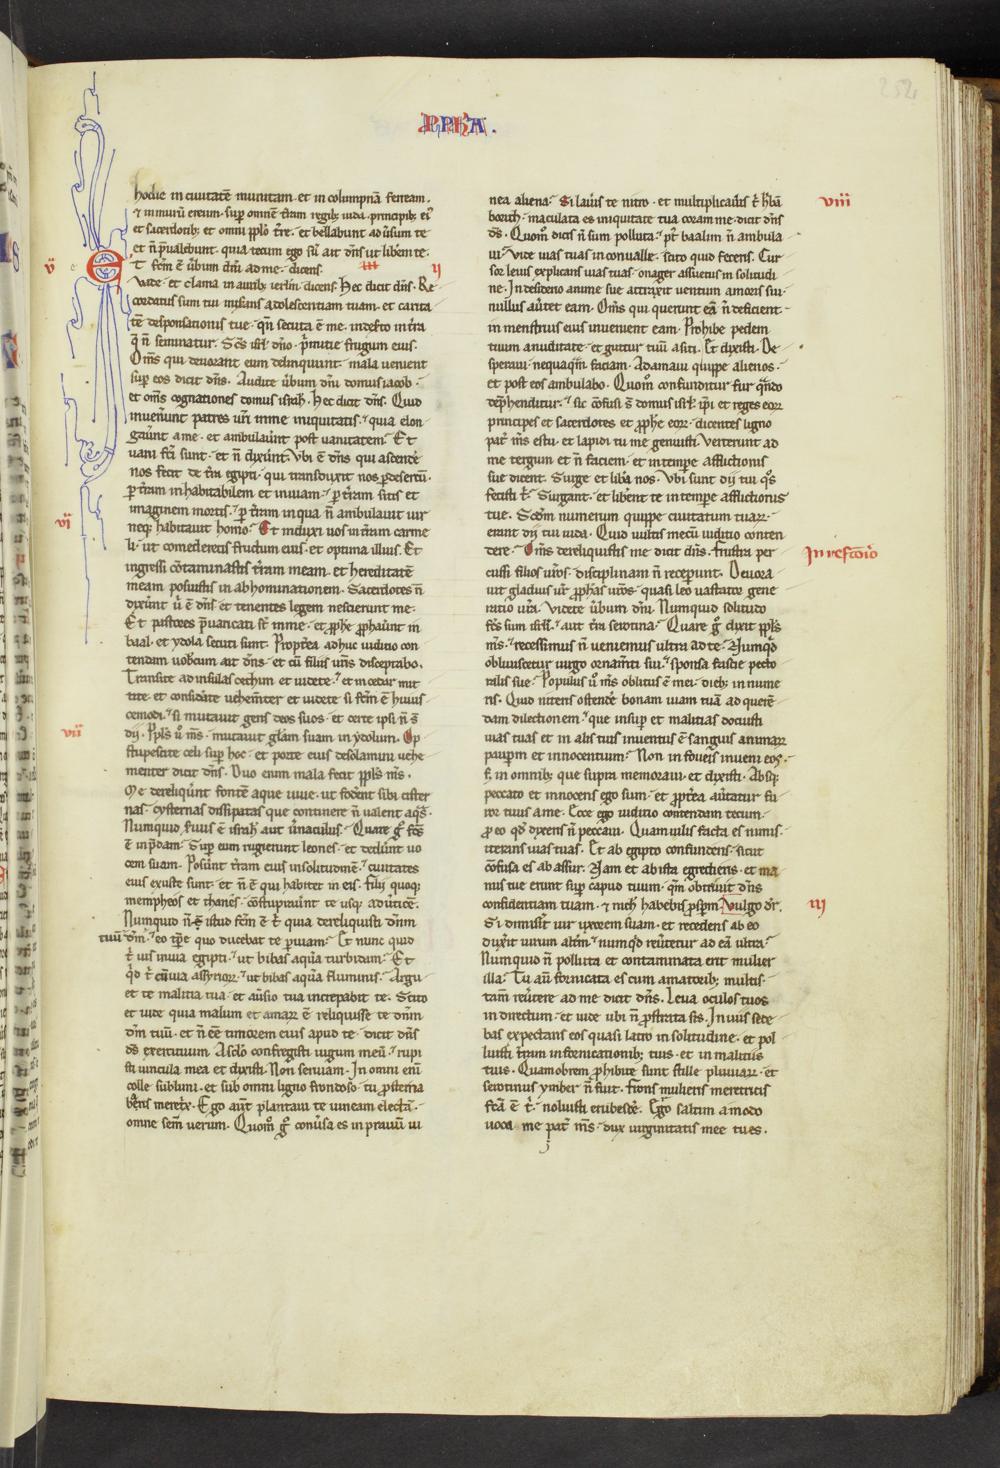 252
PPHA.
hodie in ciuitatē munitam · et in columpnā ferream ·
⁊ in murū ereum · suꝑ omnē t̄ram regibꝫ iuda · principibꝫ ei᷒
et sacerdotibꝫ · et omni pplo t̄re · et bellabunt aduͥsum te
et n̄ p̄ualebunt · quia tecum ego sū ait dn̄s ut libem te ·
v̈ ET fcm̄ ē u̇bum dn̄i ad me · dicens · ij
Vade · et clama in auribꝫ ierlm̄ dicens · Hec dicit dn̄s · Re
cordatus sum tui misans adolescentiam tuam · et carita
tē desponsationis tue · qn̄ secuta ē me · in defto in t̄ra
q̄ n̄ seminatur · Scs̄ isrl̄ dn̄o · p̄mitie frugum eius ·
Oms̄ qui deuorant eum delinquunt · mala uenient
suꝑ eos dicit dn̄s · Audite u̇bum dn̄i domus iacob ·
et oms̄ cognationes domus israh̄l · Hec dicit dn̄s · Quid
inuen̄unt patres ur̄i in me iniquitatis · ⁊ quia elon
gaūnt a me · et ambulaūnt post uanitatem · Et
uani fc̄i sunt · et n̄ dixūnt · Vbi ē dn̄s qui ascende᷒
nos fecit de t̄ra egipti · qui transduxit nos ꝑ desertū ·
ꝑ t̄ram inhabitabilem et inuiam · ꝑ t̄ram sitis et
imaginem mortis · ⁊ ꝑ t̄ram in qua n̄ ambulauit uir
vi neqꝫ habitauit homo · Et induxi uos in t̄ram carme
li · ut comederetis fructum eius · et optima illius · Et
ingressi cōtaminastis t̄ram meam · et hereditatē
meam posuistis in abhominationem · Sacerdotes n̄
dixūnt u̇ ē dn̄s · et tenentes legem nescierunt me ·
Et pastores p̄uaricati st̄ in me · et ꝓph̄e ꝓphaūnt in
baal · et ydola secuti sunt · Propt̄ea adhuc iuditio con
tendam uobͥcum ait dn̄s · et cū filiis ur̄is disceptabo ·
Transite ad insulas cethim et uidete · ⁊ et in cedar mit
tite · et considate uehem̄ter et uidete si fcm̄ ē huius
cemodi · ⁊ si mutauit gens deos suos · et certe ipsi n̄ s̄
vii dij · Ppls̄ u̇ ms̄ · mutauit glām suam in ydolum · Ob
stupescite celi suꝑ hoc · et porte eius desolamini uehe
menter dicit dn̄s · Duo enim mala fecit ppls̄ ms̄ ·
Me dereliqūnt fontē aque uiue · ut fodent sibi cister
nas · cysternas dissipatas que continere n̄ ualent aqͣs ·
Numquid s̄uus ē israh̄l aut u̇naculus · Quare gͦ fcs̄
ē in p̄dam · Suꝑ eum rugierunt leones · et dedūnt uo
cem suam · Posūnt t̄ram eius in solitudinē · ⁊ ciuitates
eius exuste sunt · et n̄ ē qui habitet in eis · Filij quoqꝫ
mempheos et thanes̄ · cōstupraūnt te usqꝫ ad u̇ticē ·
Numquid n̄ istud fcm̄ ē t̄ quia dereliquisti dn̄m
tuū dm̄ · ⁊ eo tp̄e quo ducebat te ꝑ uiam · Et nunc quid
t̄ uis in uia egipti · ⁊ ut bibas aqua turbidam · Et
qͥd t̄ cū uia assyrioꝝ · ⁊ ut bibas aquā fluminis · Argu
et te malitia tua · et aūsio tua increpabit te · Scito
et uide quia malum et amarꝝ ē reliquisse te dn̄m
dm̄ tuū · et n̄ eē timorem eius apud te · dicit dn̄s
ds̄ exercituum · A sclō confregisti iugum meū · ⁊ rupi
sti uincula mea et dixisti · Non seruiam · In omni enī
colle sublimi · et sub omni ligno frondoso · tu ꝓsterna
bͣris meret̄x · Ego aut̄ plantaui te uineam electā ·
omne sem̄ uerum · Quom̄ gͦ conūsa es in prauū ui
nea aliena · Si lau̇is te nitro · et multiplicau̇is t̄ hͤbā viii
borith · maculata es iniquitate tua coram me · dicit dn̄s
ds̄ · Quom̄ dicis n̄ sum polluta · ⁊ pt̄ baalim n̄ ambula
ui · Vide uias tuas in conualle · scito quid feceris · Cur
sor leuis explicans uias tuas · onager assuetus in solitudi
ne · In desiderio anime sue attraxit uentum amoris sui ·
nullus aūtet eam · Oms̄ qui querunt eā n̄ deficient ·
in menstruis eius inuenient eam · Prohibe pedem
tuum a nuditate · et guttur tuū a siti · Et dixisti · De
speraui · nequaqͣm faciam · Adamaui quippe alienos ·
et post eos ambulabo · Quom̄ confunditur fur qͣndo
dep̄henditur · ⁊ sic cōfusi s̄ domus isrl̄ · ip̄i et reges eoꝝ
principes et sacerdotes et ꝓph̄e eoꝝ · dicentes ligno
pat̄ ms̄ es tu · et lapidi tu me genuisti · Verterunt ad
me tergum et n̄ faciem · et in tempe afflictionis
sue dicent · Surge et liba nos · Vbi sunt dij tui qͦs
fecisti t̄ · Surgant · et libent te in tempe afflictionis
tue · Scdm̄ numerum quippe ciuitatum tuaꝝ ·
erant dij tui iuda · Quid uultis mecū iuditio conten
dere · Oms̄ dereliquistis me dicit dn̄s · frustra per In refctōrio
cussi filios ur̄os · disciplinam n̄ receperunt · Deuora
uit gladius ur̄ ꝓphas ur̄os · quasi leo uastator gene
ratio ur̄a · Videte u̇bum dn̄i · Numquid solitudo
fcs̄ sum isrl̄ · ⁊ aut t̄ra serotina · Quare gͦ dixit ppls̄
ms̄ · ⁊ recessimus n̄ ueniemus ultra ad te · Numqͥd
obliuiscetur uirgo ornam̄ti sui · ⁊ sponsa fascie pecto
ralis sue · Populus u̇ ms̄ oblitus ē mei · diebꝫ in nume
ris · Quid niteris ostende᷒ bonam uiam tuā ad queren̄
dam dilectionem · ⁊ que insuꝑ et malitias docuisti
uias tuas et in alis tuis inuentus ē sanguis animaꝝ
pauꝑum et innocentium · Non in foueis inueni eos ·
s; in omnibꝫ que supra memoraui · et dixisti · Absqꝫ
peccato et innocens ego sum · et ꝓpt̄ea aūtatur fu
ror tuus a me · Ecce ego iuditio contendam tecum ·
ꝓ eo qd̄ dixeris n̄ peccaui · Quam uilis facta es nimis ·
iterans uias tuas · Et ab egypto confunderis · sicut
cōfusa es ab assur · Nam et ab ista egredieris · et ma
nus tue erunt suꝑ capud tuum · qm̄ obtriuit dn̄s
confidentiam tuam · ⁊ nich̄ habebis ꝓsꝑm̄ Vulgo dr̄ · iij
Si dimisit̄ uir uxorem suam · et recedens ab eo
duxit̄ uirum altm̄ · ⁊ numqͥd reu̇tetur ad eā ultra ·
Numquid n̄ polluta et contaminata erit mulier
illa · Tu aut̄ fornicata es cum amatoribꝫ multis ·
tam̄ reūtere ad me dicit dn̄s · Leua oculos tuos
in directum · et uide ubi n̄ ꝓstrata sis · In uiis sede
bas expectans eos quasi latro in solitudine · et pol
luisti t̄ram in fornicationibꝫ tuis · et in malitiis
tuis · Quamobrem ꝓhibite sunt stille pluuiaꝝ · et
serotinus ymber n̄ fuit · frons mulieris meretricis
fcā ē t̄ · noluisti erubesce᷒ · Ergo saltim amodo
uoca me pat̄ ms̄ · dux uirginitatis mee tu es ·